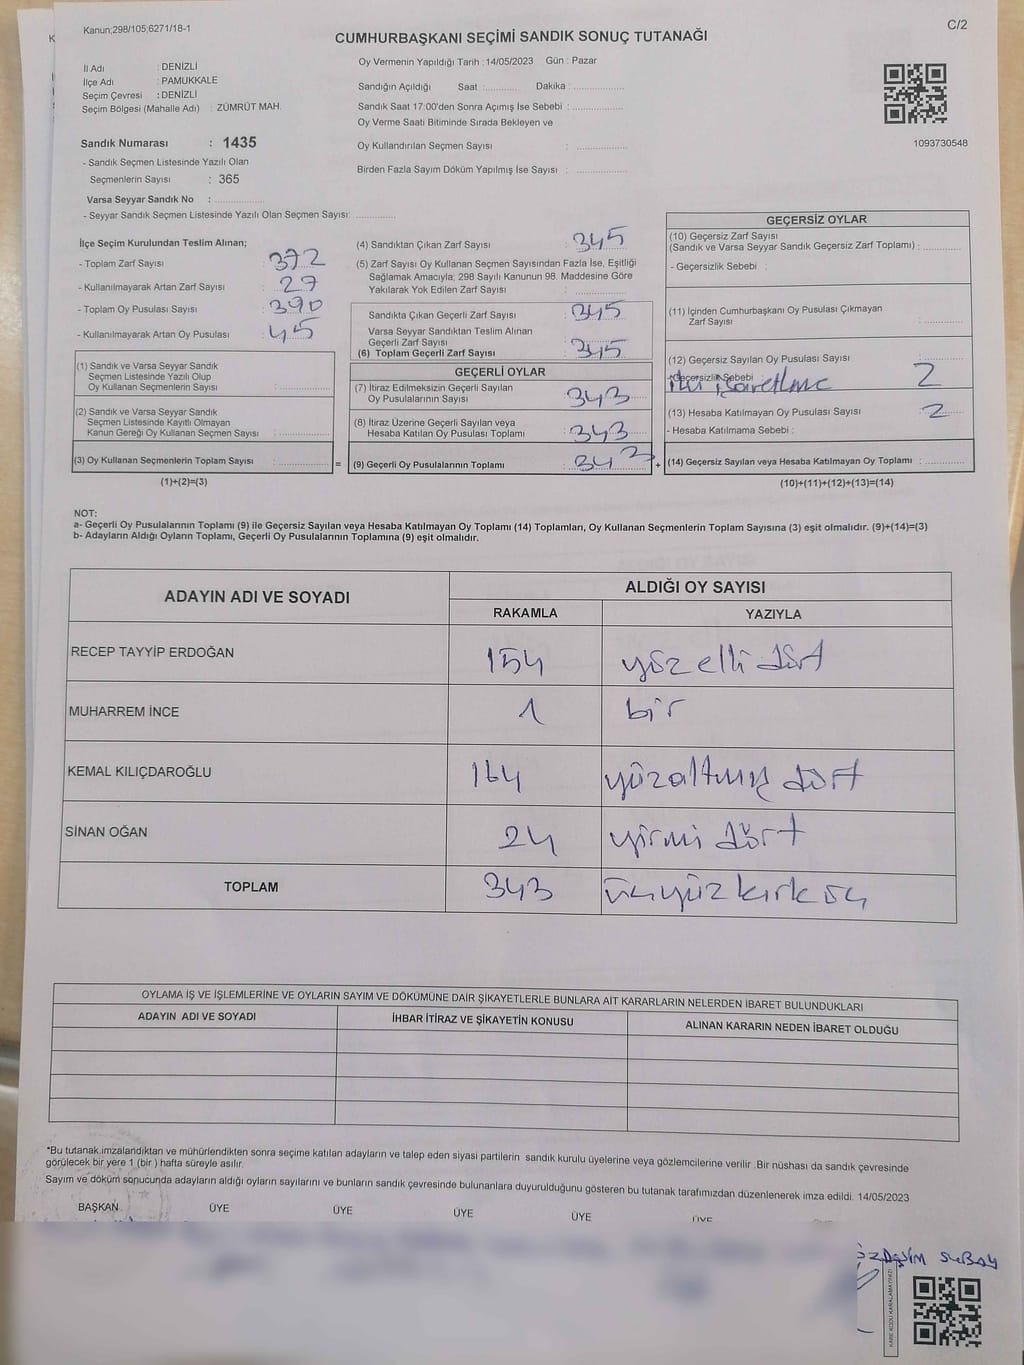 Kanun;298/105;6271/18-1
C/2
CUMHURBAŞKANI SEÇİMİ SANDIK SONUÇ TUTANAĞI
İl Adı : DENİZLİ
İlçe Adı : PAMUKKALE
Seçim Çevresi : DENİZLİ
Seçim Bölgesi (Mahalle Adı) : ZÜMRÜT MAH.
Sandık Numarası : 1435
- Sandık Seçmen Listesinde Yazılı Olan
Seçmenlerin Sayısı : 365
Varsa Seyyar Sandık No :
- Seyyar Sandık Seçmen Listesinde Yazılı Olan Seçmen Sayısı:
Oy Vermenin Yapıldığı Tarih : 14/05/2023 Gün : Pazar
Sandığın Açıldığı Saat : Dakika :
Sandık Saat 17:00'den Sonra Açımış İse Sebebi :
Oy Verme Saati Bitiminde Sırada Bekleyen ve
Oy Kullandırılan Seçmen Sayısı :
Birden Fazla Sayım Döküm Yapılmış İse Sayısı :
1093730548
İlçe Seçim Kurulundan Teslim Alınan;
- Toplam Zarf Sayısı : 372
- Kullanılmayarak Artan Zarf Sayısı : 27
- Toplam Oy Pusulası Sayısı : 390
- Kullanılmayarak Artan Oy Pusulası : 45
(1) Sandık ve Varsa Seyyar Sandık
Seçmen Listesinde Yazılı Olup
Oy Kullanan Seçmenlerin Sayısı :
(2) Sandık ve Varsa Seyyar Sandık
Seçmen Listesinde Kayıtlı Olmayan
Kanun Gereği Oy Kullanan Seçmen Sayısı :
(3) Oy Kullanan Seçmenlerin Toplam Sayısı :
(1)+(2)=(3)
(4) Sandıktan Çıkan Zarf Sayısı : 345
(5) Zarf Sayısı Oy Kullanan Seçmen Sayısından Fazla İse, Eşitliği
Sağlamak Amacıyla; 298 Sayılı Kanunun 98. Maddesine Göre
Yakılarak Yok Edilen Zarf Sayısı :
Sandıkta Çıkan Geçerli Zarf Sayısı : 345
Varsa Seyyar Sandıktan Teslim Alınan
Geçerli Zarf Sayısı :
(6) Toplam Geçerli Zarf Sayısı : 345
GEÇERLİ OYLAR
(7) İtiraz Edilmeksizin Geçerli Sayılan
Oy Pusulalarının Sayısı : 343
(8) İtiraz Üzerine Geçerli Sayılan veya
Hesaba Katılan Oy Pusulası Toplamı : 343
= (9) Geçerli Oy Pusulalarının Toplamı : 343 +
GEÇERSİZ OYLAR
(10) Geçersiz Zarf Sayısı
(Sandık ve Varsa Seyyar Sandık Geçersiz Zarf Toplamı) :
- Geçersizlik Sebebi :
(11) İçinden Cumhurbaşkanı Oy Pusulası Çıkmayan
Zarf Sayısı :
(12) Geçersiz Sayılan Oy Pusulası Sayısı : 2
- Geçersizlik Sebebi : işaretleme
(13) Hesaba Katılmayan Oy Pusulası Sayısı : 2
- Hesaba Katılmama Sebebi :
(14) Geçersiz Sayılan veya Hesaba Katılmayan Oy Toplamı :
(10)+(11)+(12)+(13)=(14)
NOT:
a- Geçerli Oy Pusulalarının Toplamı (9) ile Geçersiz Sayılan veya Hesaba Katılmayan Oy Toplamı (14) Toplamları, Oy Kullanan Seçmenlerin Toplam Sayısına (3) eşit olmalıdır. (9)+(14)=(3)
b- Adayların Aldığı Oyların Toplamı, Geçerli Oy Pusulalarının Toplamına (9) eşit olmalıdır.
ADAYIN ADI VE SOYADI
ALDIĞI OY SAYISI
RAKAMLA YAZIYLA
RECEP TAYYİP ERDOĞAN 154 yüz elli dört
MUHARREM İNCE 1 bir
KEMAL KILIÇDAROĞLU 164 yüzaltmış dört
SİNAN OĞAN 24 yirmi dört
TOPLAM 343 üçyüz kırk üç
OYLAMA İŞ VE İŞLEMLERİNE VE OYLARIN SAYIM VE DÖKÜMÜNE DAİR ŞİKAYETLERLE BUNLARA AİT KARARLARIN NELERDEN İBARET BULUNDUKLARI
ADAYIN ADI VE SOYADI İHBAR İTİRAZ VE ŞİKAYETİN KONUSU ALINAN KARARIN NEDEN İBARET OLDUĞU
*Bu tutanak,imzalandıktan ve mühürlendikten sonra seçime katılan adayların ve talep eden siyasi partilerin sandık kurulu üyelerine veya gözlemcilerine verilir .Bir nüshası da sandık çevresinde
görülecek bir yere 1 (bir ) hafta süreyle asılır.
Sayım ve döküm sonucunda adayların aldığı oyların sayılarını ve bunların sandık çevresinde bulunanlara duyurulduğunu gösteren bu tutanak tarafımızdan düzenlenerek imza edildi. 14/05/2023
BAŞKAN ÜYE ÜYE ÜYE ÜYE ÜYE
SUBAY
KARE KODU KARALAMAYINIZ!